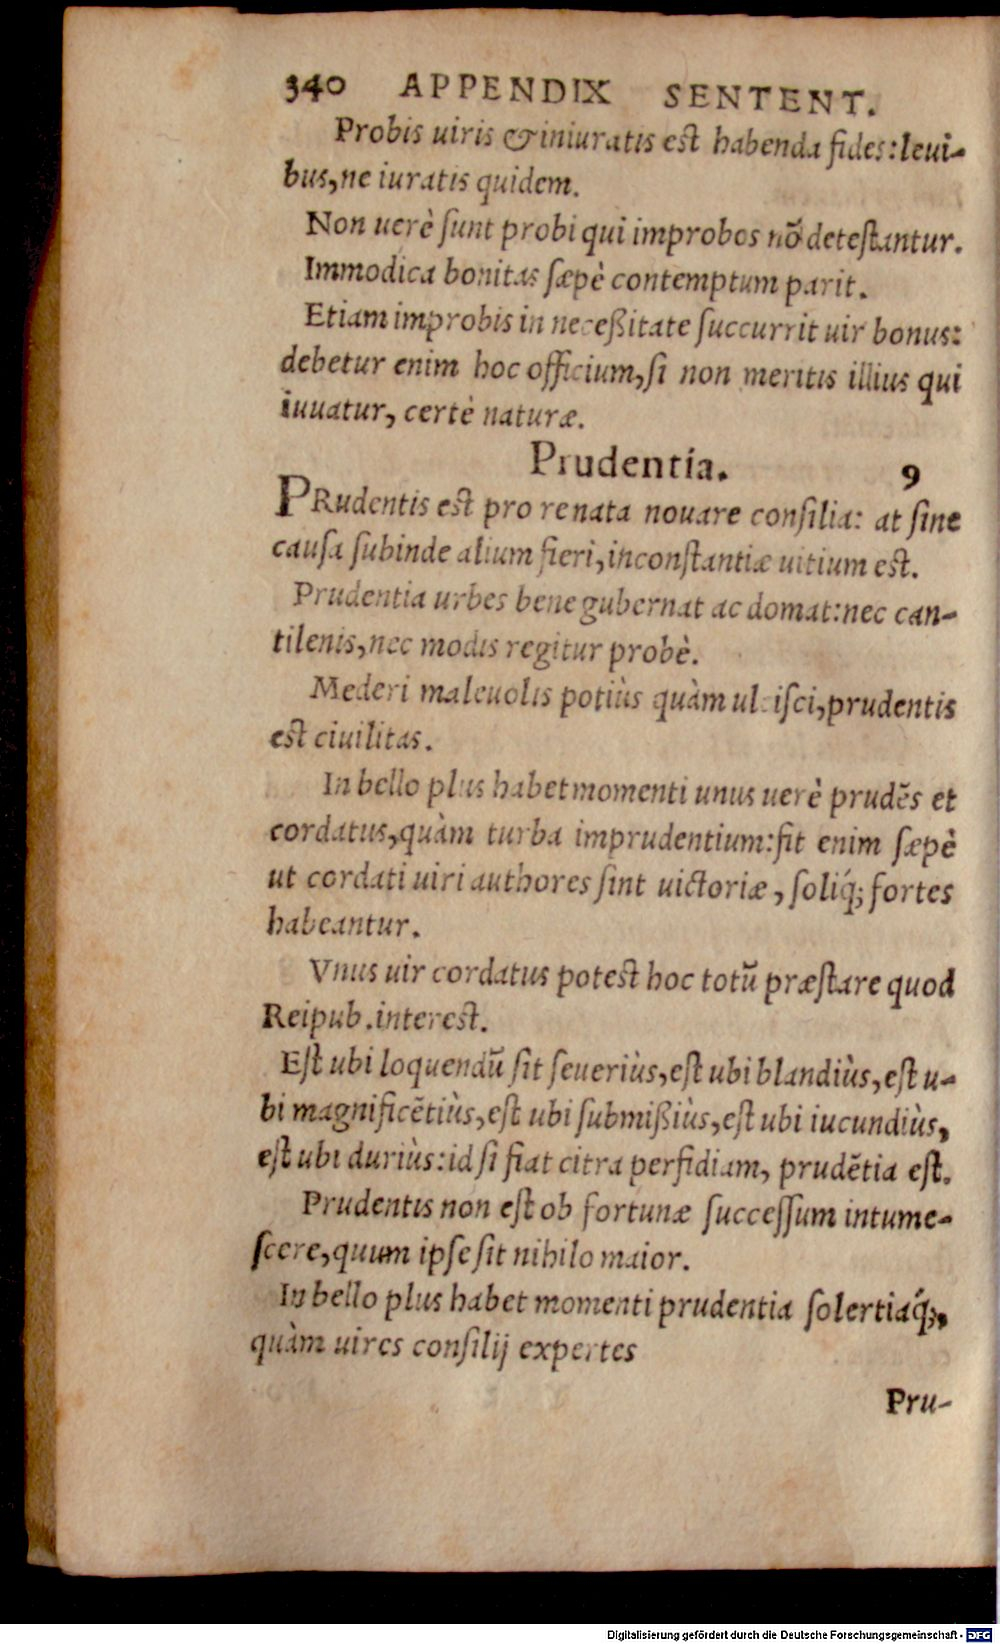 340 APPENDIX SENTENT.
Probis uiris & iniuratis est habenda fides: leui-
bus, ne iuratis quidem.
Non uerè ſunt probi qui improbos nõ deteſtantur.
Immodica bonitas ſæpè contemptum parit.
Etiam improbis in neceßitate ſuccurrit uir bonus:
debetur enim hoc officium, ſi non meritis illius qui
iuuatur, certè naturæ.
Prudentia. 9
PRudentis est pro re nata nouare conſilia: at ſine
cauſa ſubinde alium fieri, inconſtantiæ uitium est.
Prudentia urbes bene gubernat ac domat: nec can-
tilenis, nec modis regitur probè.
Mederi maleuolis potiùs quàm ulciſci, prudentis
est ciuilitas.
In bello plus habet momenti unus uerè prudẽs et
cordatus, quàm turba imprudentium: fit enim ſæpè
ut cordati uiri authores ſint uictoriæ, ſoliq́; fortes
habeantur.
Vnus uir cordatus potest hoc totũ præſtare quod
Reipub. interest.
Eſt ubi loquendũ ſit ſeueriùs, eſt ubi blandiùs, eſt u-
bi magnificẽtiùs, eſt ubi ſubmißiùs, eſt ubi iucundiùs,
eſt ubi duriùs: id ſi fiat citra perfidiam, prudẽtia eſt.
Prudentis non eſt ob fortunæ ſucceſſum intume-
ſcere, quum ipſe ſit nihilo maior.
In bello plus habet momenti prudentia ſolertiaq́;,
quàm uires conſilij expertes
Pru-
Digitalisierung gefördert durch die Deutsche Forschungsgemeinschaft - DFG